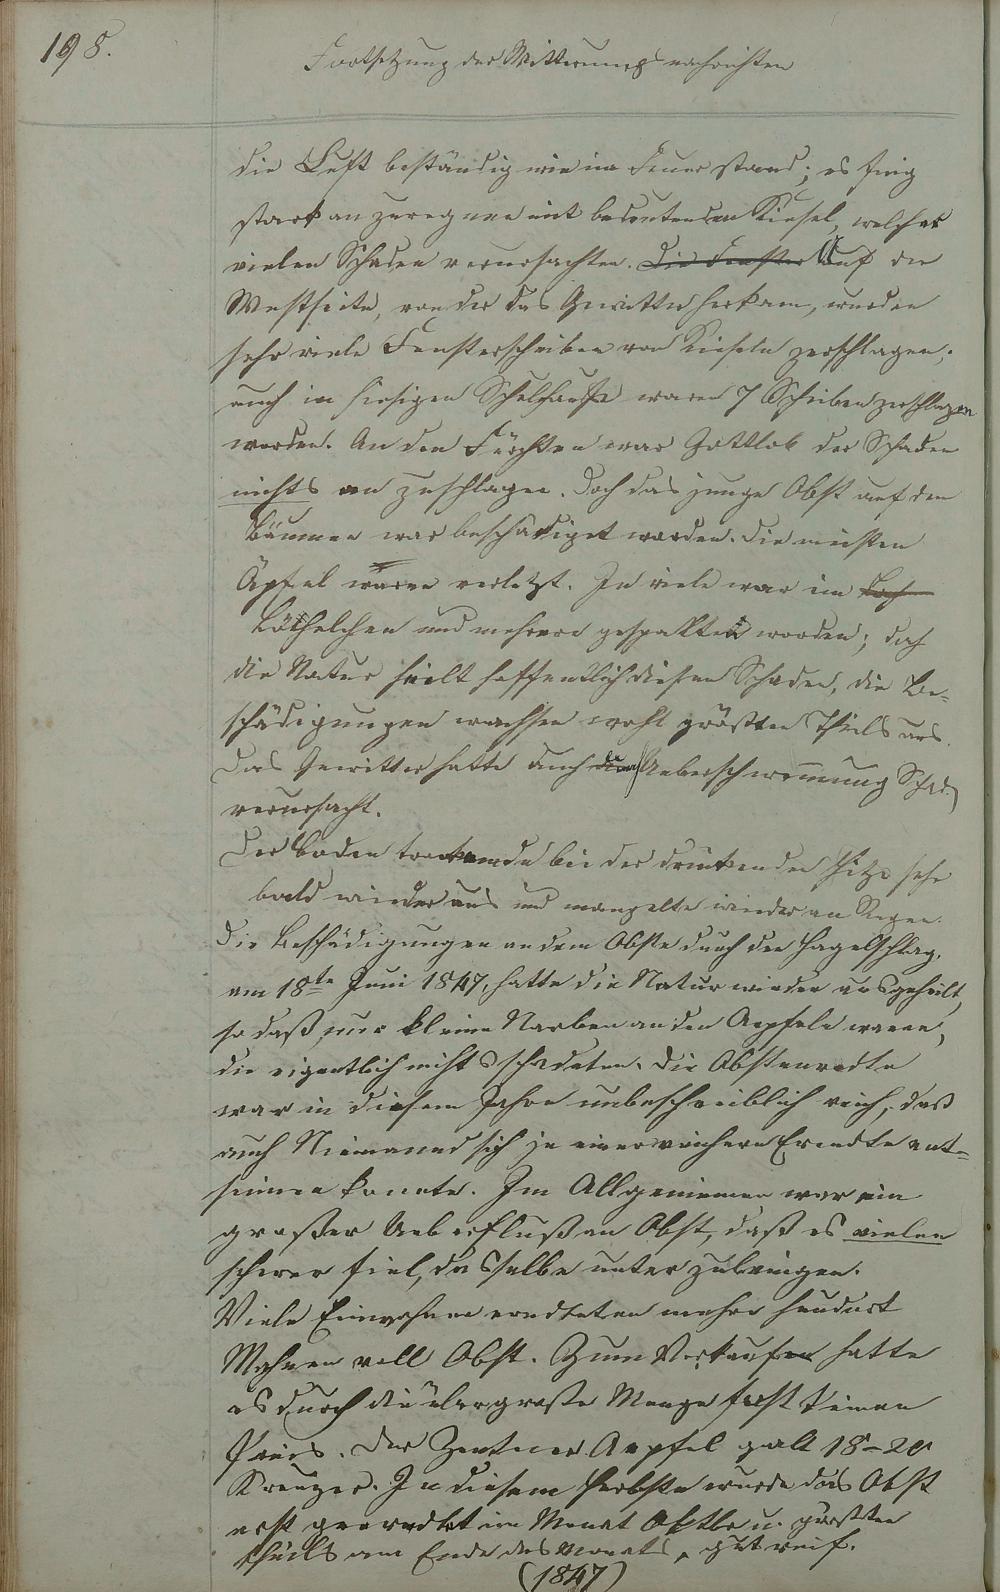 198.
Fortsetzung der Witterungsnachrichten
die Luft beständig wie im Feuer stand; es fing
stark an zu regnen mit bedeutenden Kiesel, welches
vielen Schaden verursachten. Die Fenster Auf der
Westseite, von der das Gewitter herkam, wurden
sehr viele Fensterscheiben von Kieseln zerschlagen;
auch in hiesigen Schulhause waren 7 Scheiben zerschlagen
worden. An den Früchten war Gottlob der Schaden
nichts an zuschlagen. Doch das junge Obst auf den
Bäumen war beschädiget worden. Die meisten
Äpfel waren verletzt. In viele war ein Loch
Löchelchen und mehrere gespalten worden; doch
die Natur heilt hoffentlich diesen Schaden, die Be-
schädigungen wachsen wohl größten Theils aus.
Das Gewitter hatte auch Ueberschwemmung Schad.
verursacht.
Der Boden trocknende bei der drückenden Hitze sehr
bald wieder aus und mangelte wieder an Regen.
Die Beschädigungen an dem Obste durch den Hagelschlag,
am 18te Juni 1847, hatte die Natur wieder ausgeheilt,
so daß nur kleine Narben an den Aepfeln waren,
die eigentlich nichts schadeten. Die Obstenredte
war in diesem Jahre unbeschreiblich reich, daß
auch Niemand sich je einer reichern Erndte ent-
sinnen konnte. Im Allgemeinen war ein
großer Ueberfluß an Obst, daß es vielen
schwer fiel, dasselbe unter zubringen.
Viele Einwohner erndteten mehre hundert
Mahnen voll Obst. Zum Verkaufen hatte
es durch die übergroße Menge fast keinen
Preis. Der Zentner Aepfel galt 18-20
Kreuzer. In diesem Herbste wurde das Obst
erst geerndtet im Monat Oktbr u. größten
theils am Ende des Monats, gut reif.
(1847)